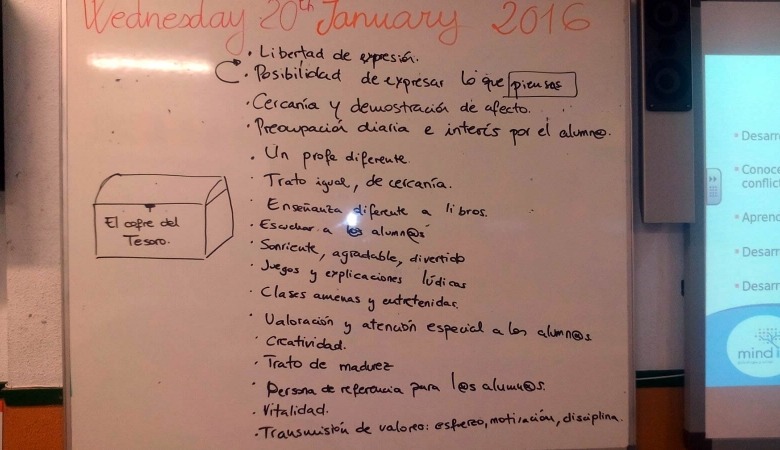 Wednesday 20th January 2016
· Libertad de expresión.
· Posibilidad de expresar lo que piensas
· Cercanía y demostración de afecto.
· Preocupación diaria e interés por el alumn@.
· Un profe diferente.
· Trato igual, de cercanía.
· Enseñanza diferente a libros.
· Escuchar a l@s alumn@s
· Sonriente, agradable, divertido
· Juegos y explicaciones lúdicas
· Clases amenas y entretenidas.
· Valoración y atención especial a los alumn@s
· Creatividad.
· Trato de madurez
· Persona de referencia para l@s alumn@s.
· Vitalidad.
· Transmisión de valores: esfuerzo, motivación, disciplina.
El cofre del
Tesoro.
Desarr
Conoce
conflic
Aprend
Desarr
Desarr
mind